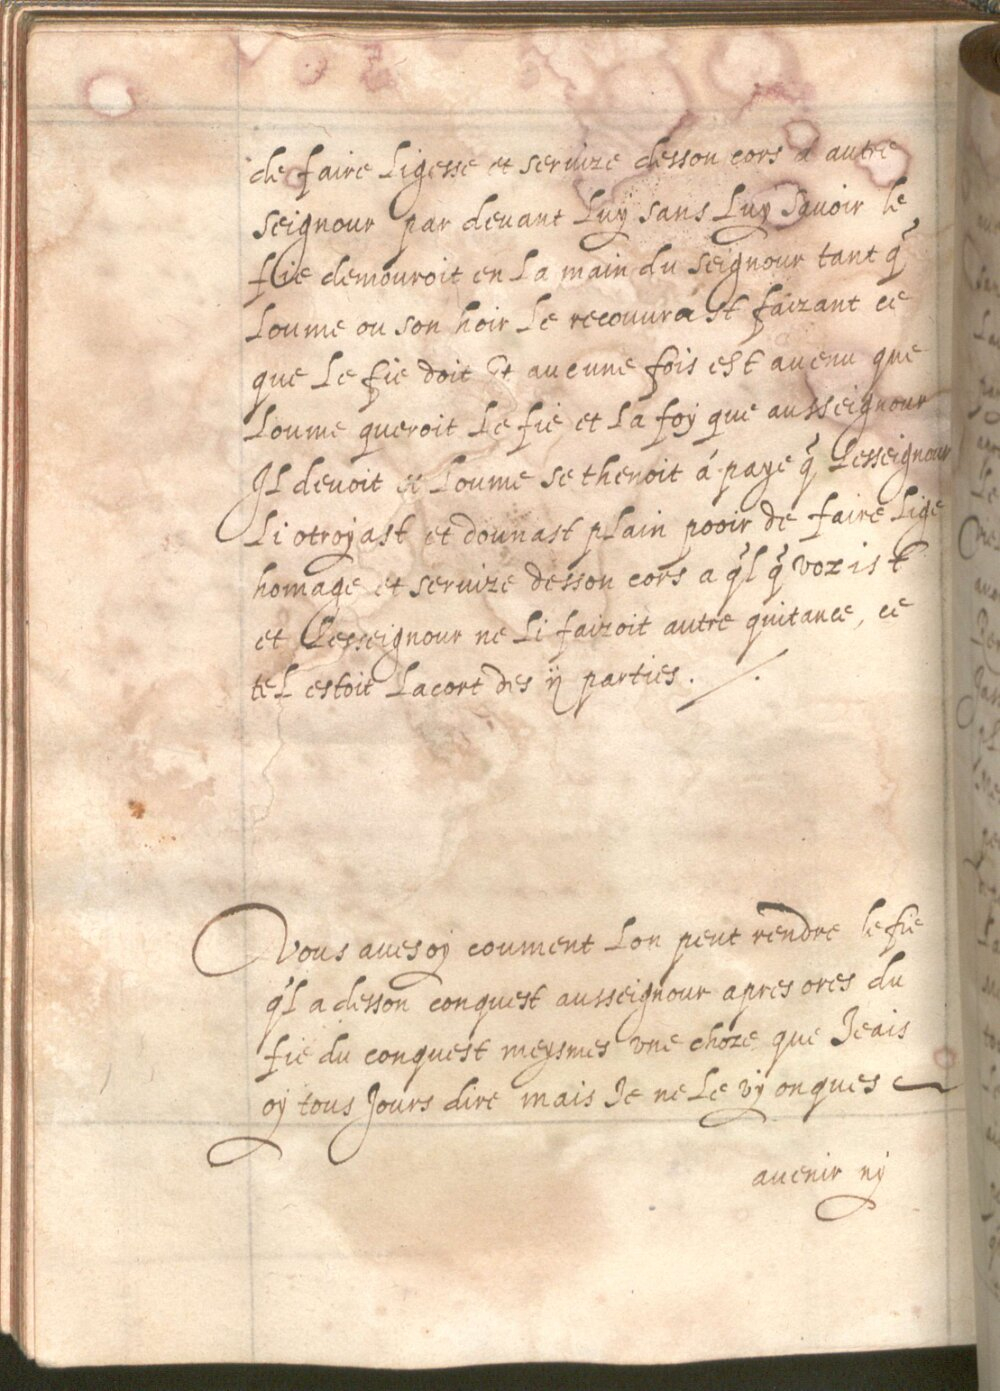 de faire Ligesse et seruize desson cors a autre
seignour par deuant Luy sans Luy sauoir le
fie demouroit en La main du seignour tant q̃
Loume ou son hoir Le recouurast faizant ce
que Le fie doit Et aucune fois est auenu que
Loume queroit Le fie et La foy que ausseignour
JL deuoit et Loume se thenoit á paye q̃ Lesseignour
Li otroyast et dounast plain pooir de faire Lige
homage et seruize desson cors a q̃l q̃ vozist
et Lesseignour ne Li faizoit autre quitance, ce
teL estoit Lacort des ij parties ./.
Vous aues oy coument Lon peut rendre le fie
q̃L a desson conquest ausseignour apres ores du
fie du conquest meysmes vne choze que Jeais
oy tous Jours dire mais Je ne Le vy onques
auenir ny